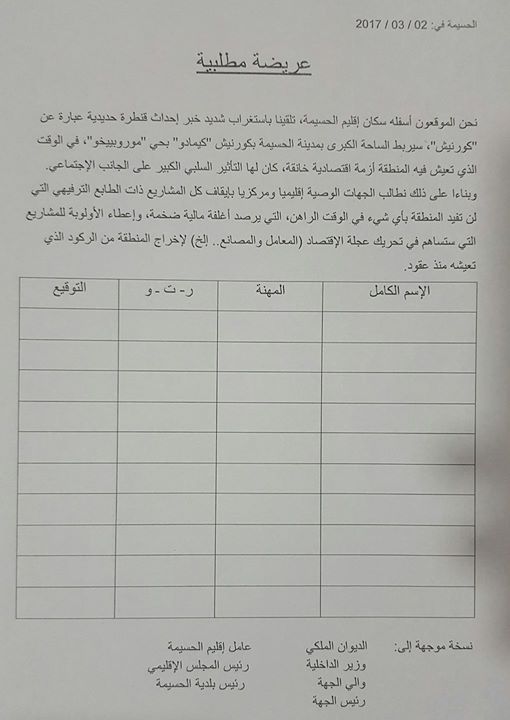 الحسيمة في: 02 / 03 / 2017
عريضة مطلبية
نحن الموقعون أسفله سكان إقليم الحسيمة، تلقينا باستغراب شديد خبر إحداث قنطرة حديدية عبارة عن
"كورنيش"، سيربط الساحة الكبرى بمدينة الحسيمة بكورنيش "كيمادو" بحي "موروبييخو"، في الوقت
الذي تعيش فيه المنطقة أزمة اقتصادية خانقة، كان لها التأثير السلبي الكبير على الجانب الإجتماعي.
وبناءا على ذلك نطالب الجهات الوصية إقليميا ومركزيا بإيقاف كل المشاريع ذات الطابع الترفيهي التي
لن تفيد المنطقة بأي شيء في الوقت الراهن، التي يرصد أغلفة مالية ضخمة، وإعطاء الأولوية للمشاريع
التي ستساهم في تحريك عجلة الإقتصاد (المعامل والمصانع.. إلخ) لإخراج المنطقة من الركود الذي
تعيشه منذ عقود.
الإسم الكامل المهنة ر- ت - و التوقيع
نسخة موجهة إلى: الديوان الملكي عامل إقليم الحسيمة
وزير الداخلية رئيس المجلس الإقليمي
والي الجهة رئيس بلدية الحسيمة
رئيس الجهة